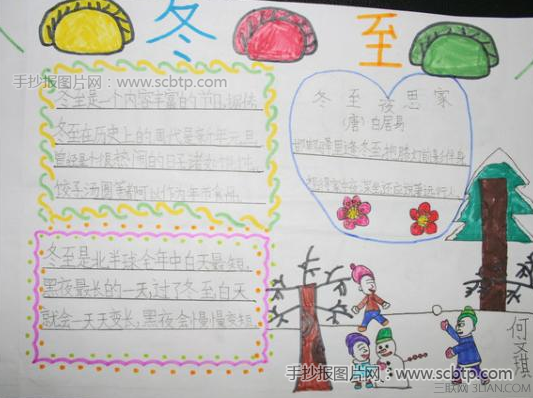 冬至
手抄报图片网：www.scbtp.com
冬至是一个内容丰富的节日,据传,
冬至在历史上的周代是新年元旦,
曾经是个很热闹的日子
饺子,汤圆
冬至夜思家
(唐)白居易
邯郸驿里逢冬至,抱膝灯前影伴身.
冬至是北半球全年中白天最短,
黑夜最长的一天,过了冬至,白天
就会一天天变长,黑夜会慢慢变短.
何文琪
手抄报图片网：www.scbtp.com
三联网 3LIAN.COM